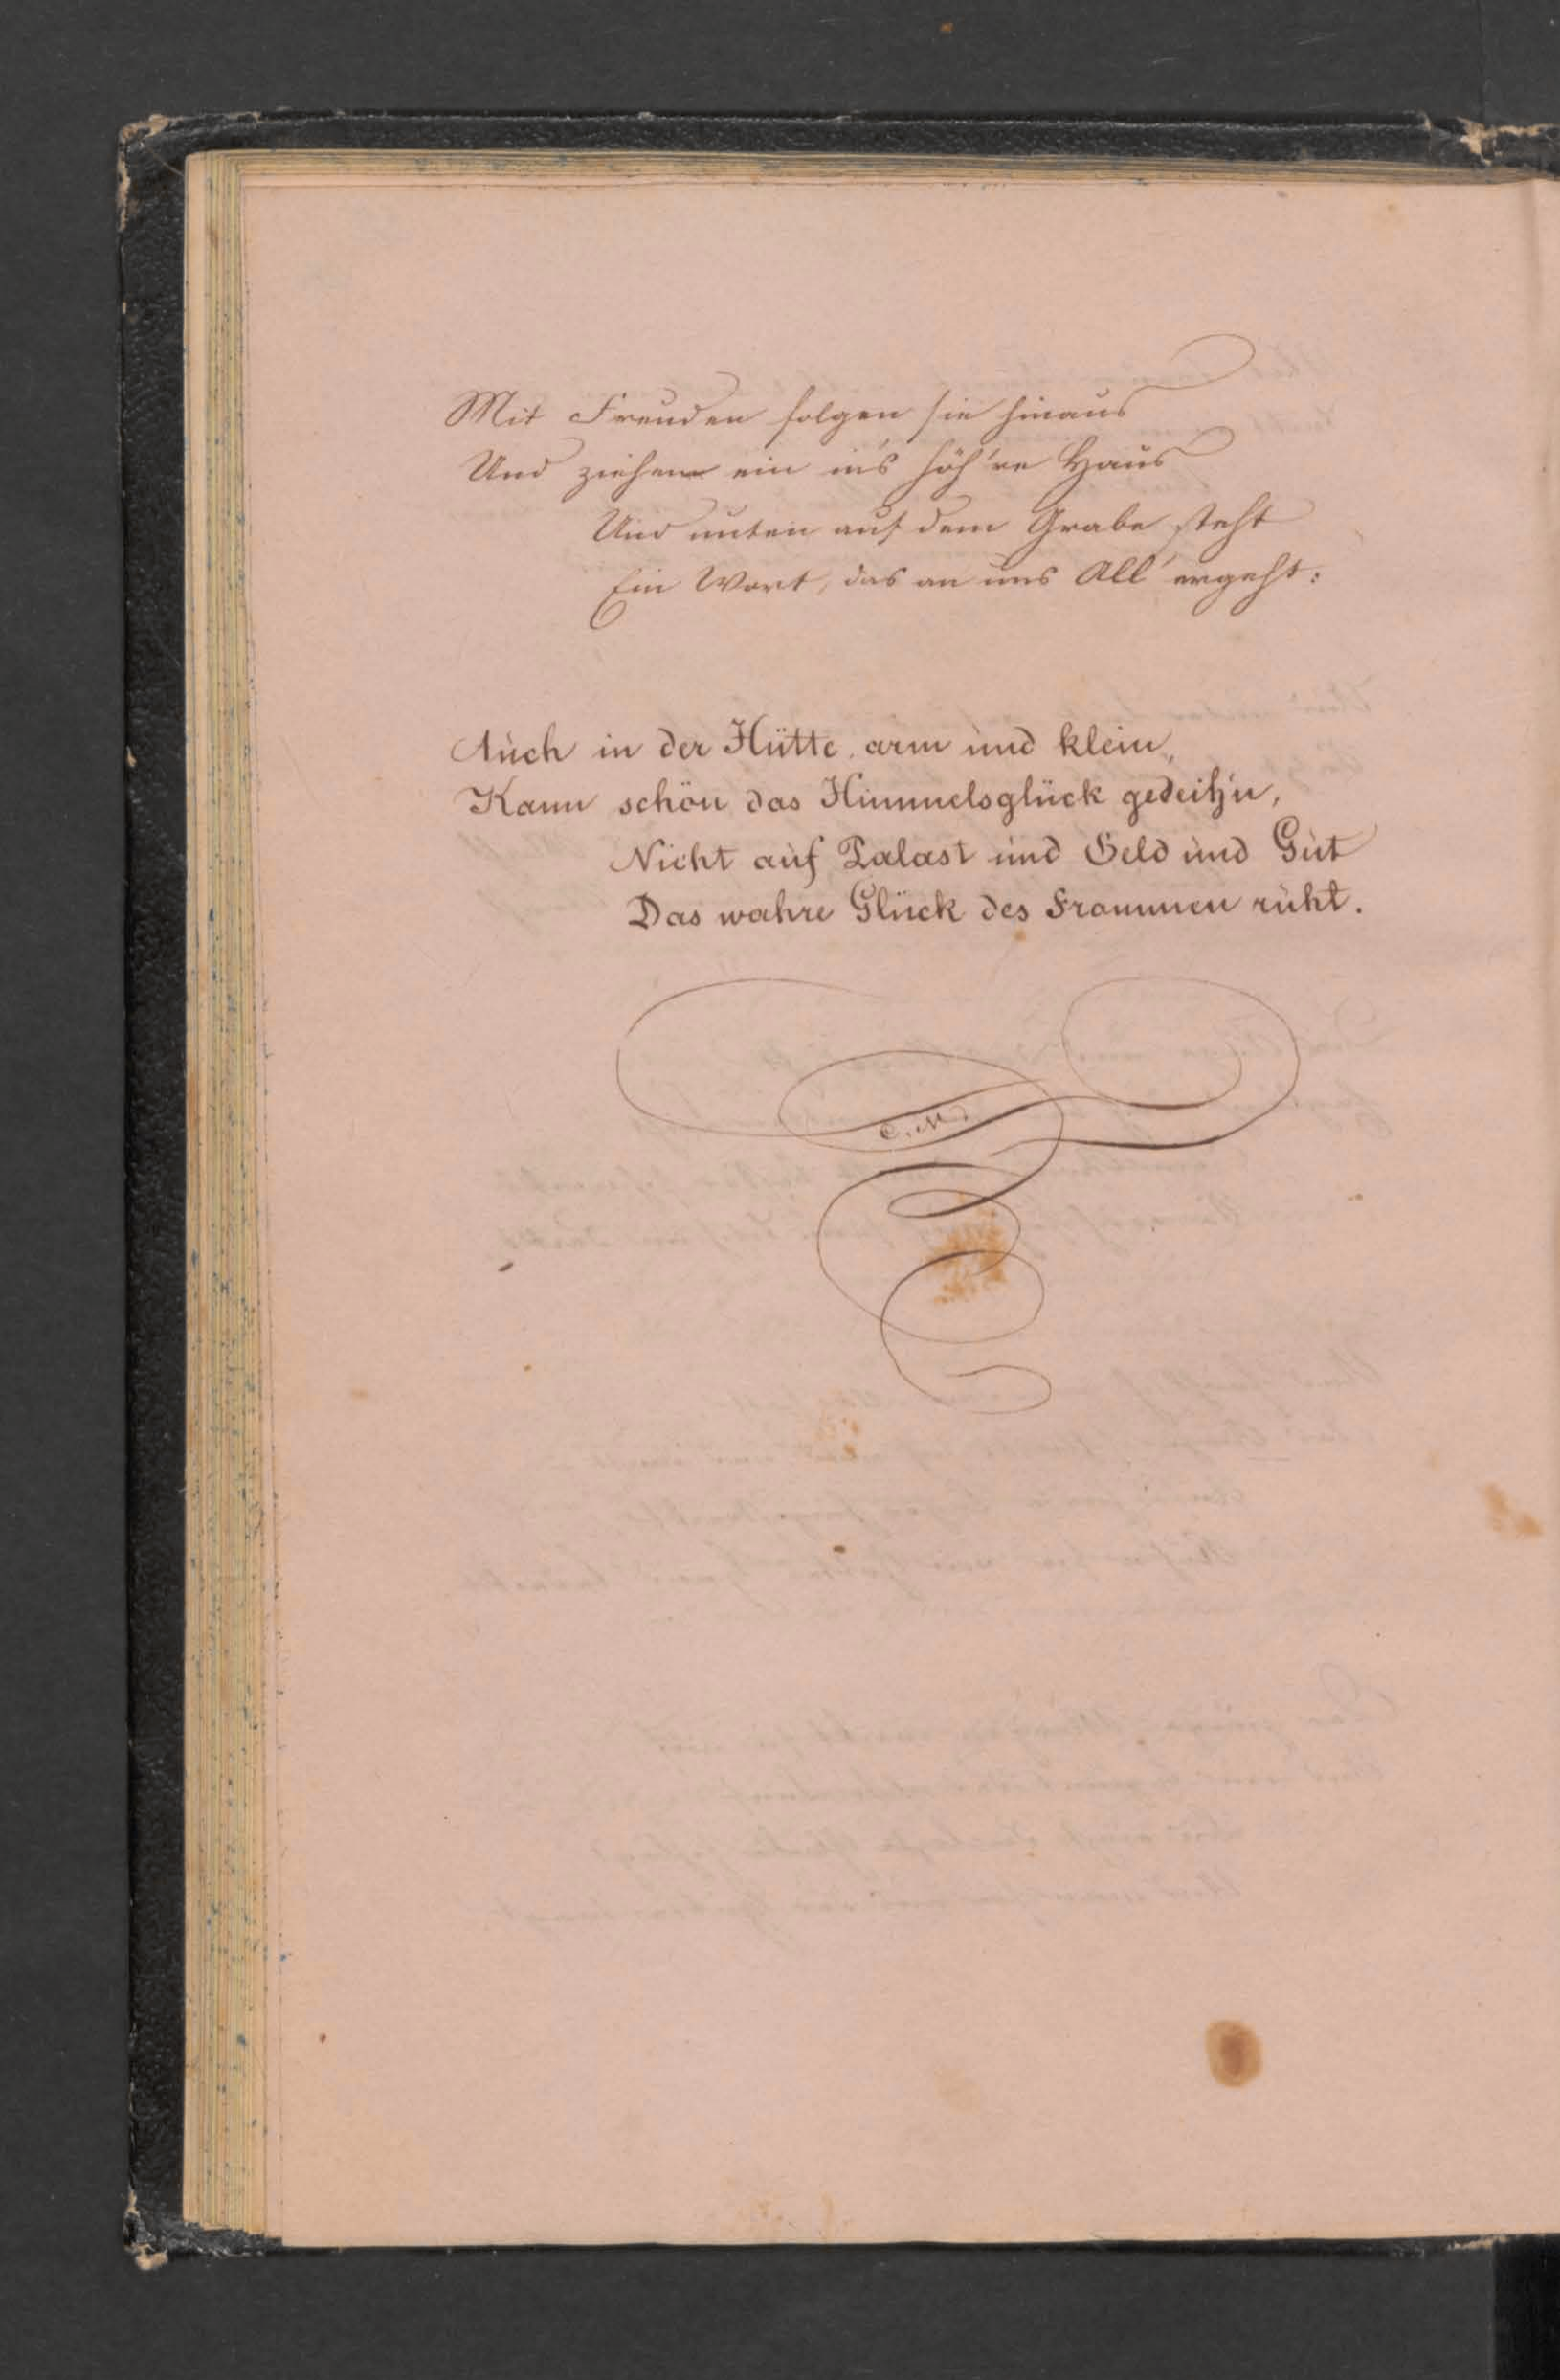 Mit Freuden folgen sie hinaus
Und ziehen ein in's höh're Haus
Und unten auf dem Grabe steht
Ein Wort, das an uns All' ergeht:
Auch in der Hütte, arm und klein,
Kann schön das Himmelsglück gedeih'n,
Nicht auf Palast und Geld und Gut
Das wahre Glück des Frommen ruht.
C. M.